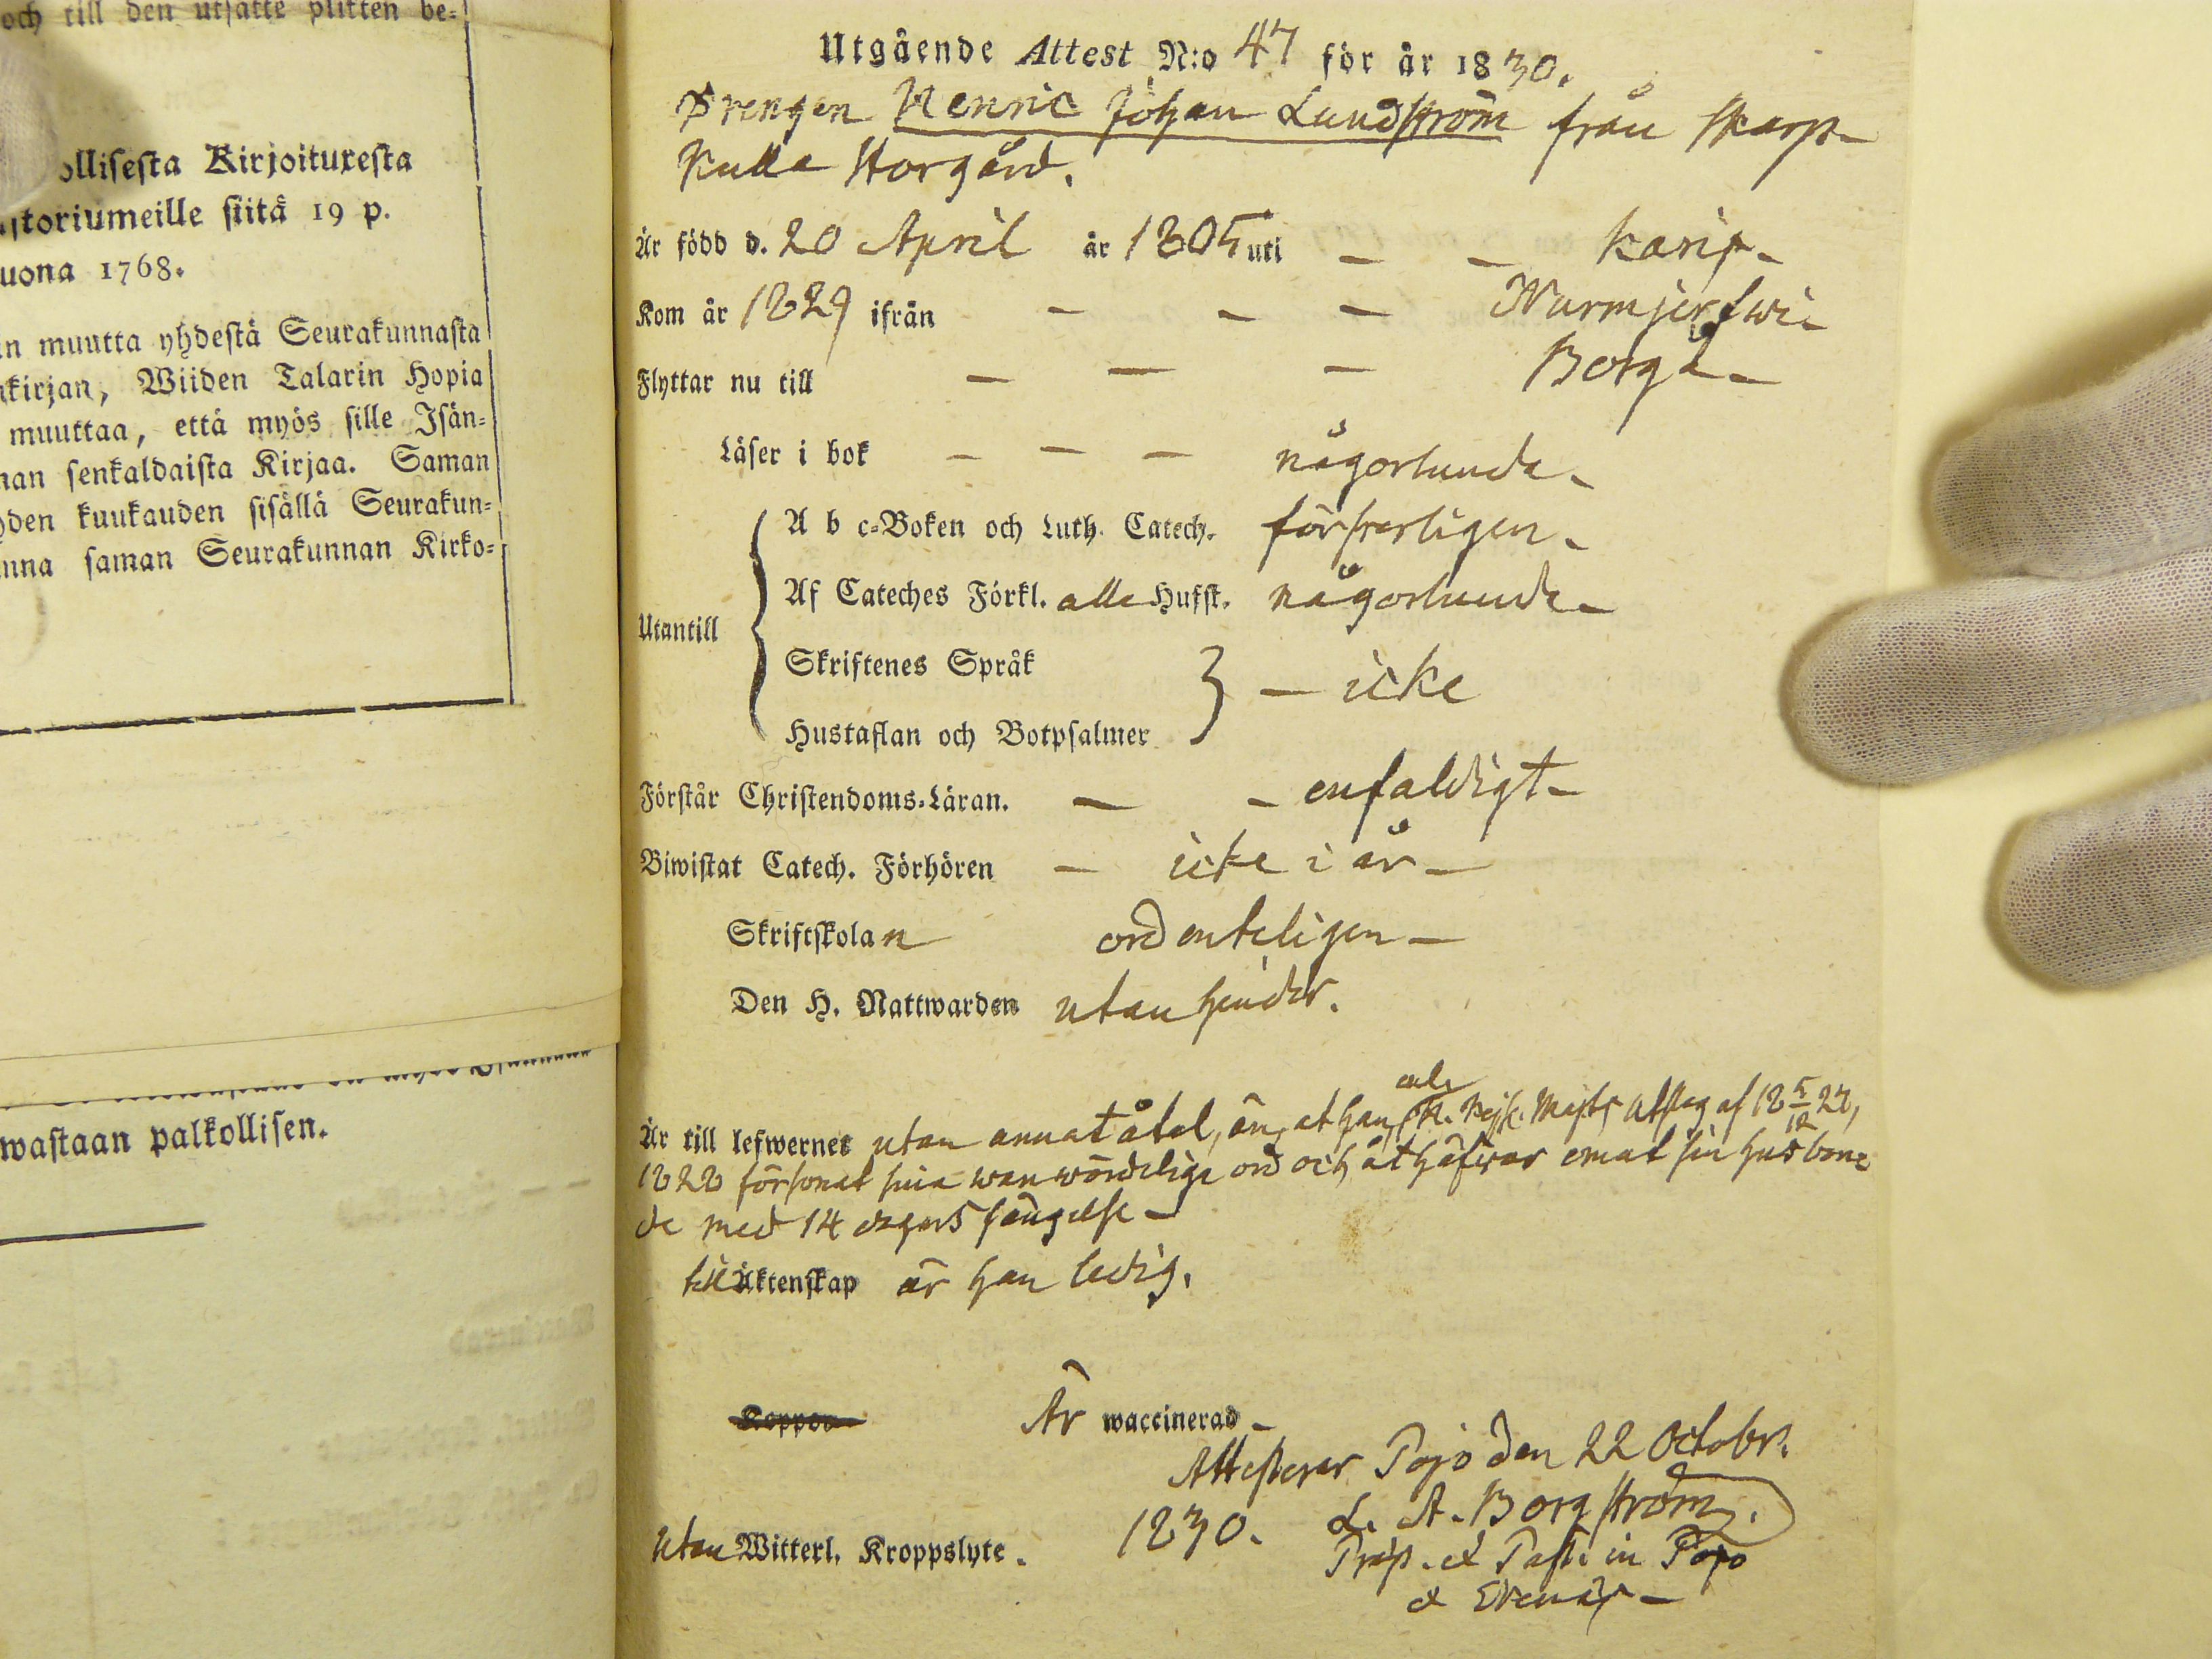 och till den utsatte plikten be-
ollisesta Kirjoituxesta
storiumeille siitä 19 p.
uona 1768.
in muutta yhdestä Seurakunnasta
akirjan, Wiiden Talarin Hopia
muuttaa, että myös sille Isän-
nan senkaldaista Kirjaa. Saman
hden kuukauden sisällä Seurakun-
inna saman Seurakunnan Kirko-
wastaan palkollisen.
Utgående Attest N:o 47 för år 1830.
Drengen Henric Johan Lundström från Skarp-
kulla Storgård.
Är född d. 20 April år 1805 uti - - Karis -
Kom år 1829 ifrån - - - Nurmijerfwi -
Flyttar nu till - - - Borgå -
Läser i bok - - - någorlunda -
Utantill
A b c-Boken och Luth. Catech. försvarligen -
Af Cateches Förkl. alla Hufst. någorlunda -
Skriftenes Språk
- icke
Hustaflan och Botpsalmer
Förstår Christendoms-Läran. - - enfaldigt -
Biwistat Catech. Förhören - icke i år -
Skriftskolan ordenteligen -
Den H. Nattwarden utan hinder.
enl.
Är till lefwernet utan annat åtal, än, at han K. Kejs. Maj:ts utslag af 18 5/12 27,
1828 försonat sina wanwördeliga ord och åthäfwor emot sin husbon-
de med 14 dagars fängelse -
till Äktenskap är han ledig.
Koppor Är waccinerad -
Attesterar Pojo den 22 Octobr.
1830. L. A. Borgström.
utan Witterl. Kroppslyte.
Præp. et Past. in Pojo
&